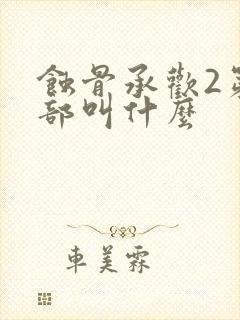 蝕骨承歡2第
部叫什麼
車美霖